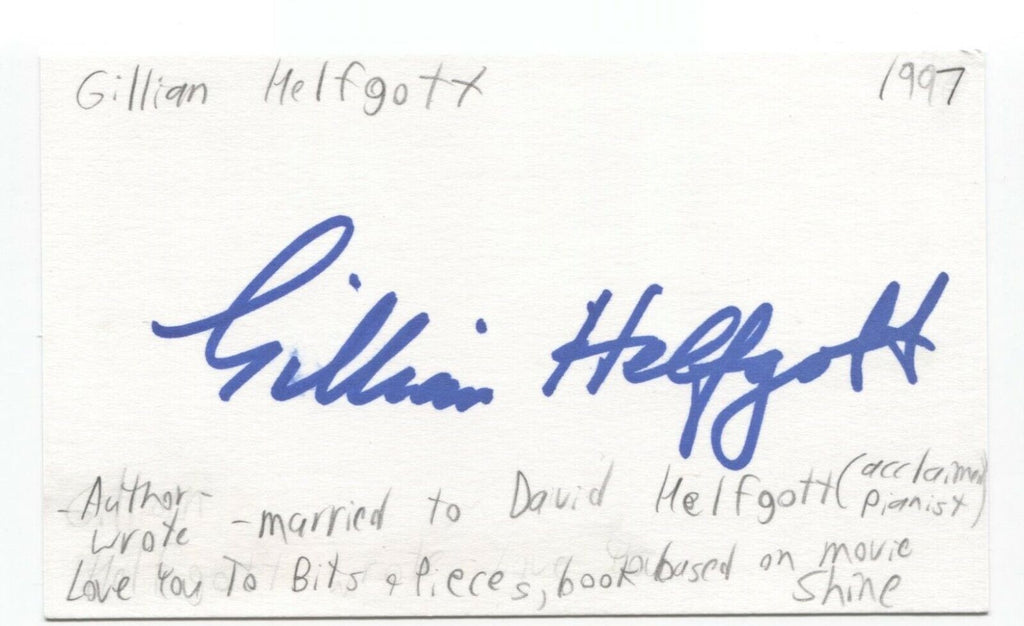 Gillian Helfgott 1997
Gillian Helfgott
-Author- -married to David Helfgott (acclaimed pianist)
wrote
Love You To Bits & Pieces, book based on movie
Shine